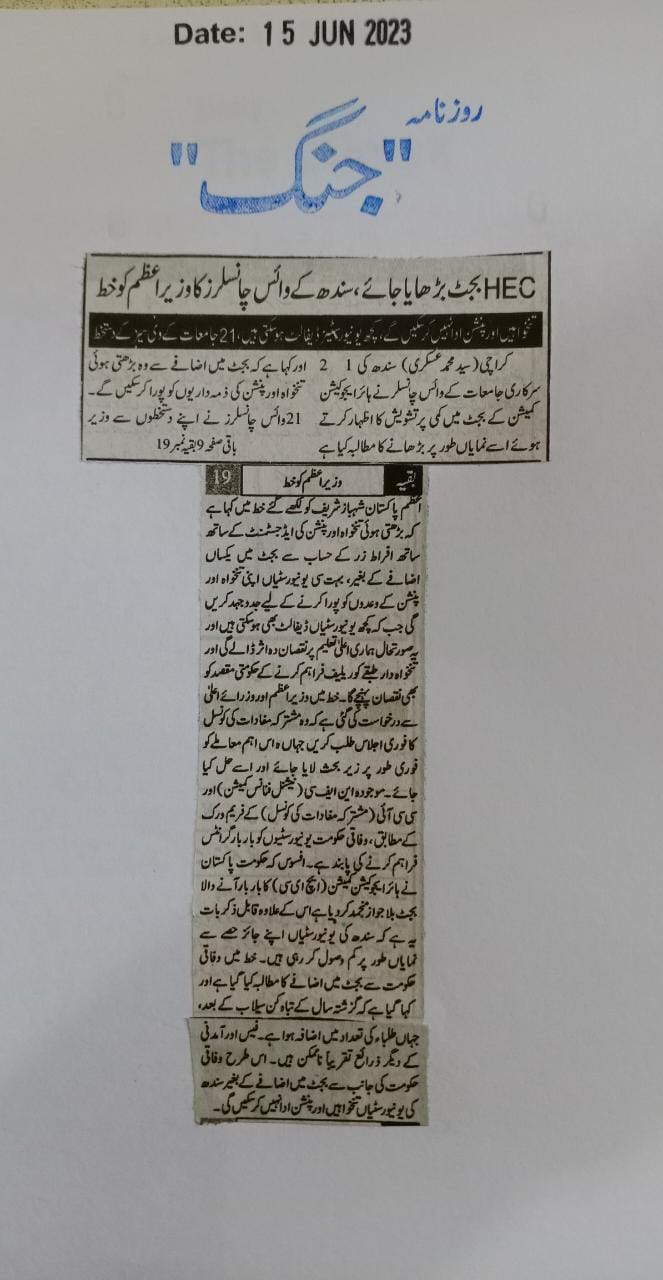 Date: 15 JUN 2023
روزنامہ
"جنگ"
HEC بجٹ بڑھایا جائے، سندھ کے وائس چانسلرز کا وزیراعظم کو خط
تنخواہیں اور پنشن ادا نہیں کرسکیں گے، کچھ یونیورسٹیز ڈیفالٹ ہوسکتی ہیں، 21 جامعات کے وی سیز کے دستخط
کراچی (سید محمد عسکری) سندھ کی 1 2
سرکاری جامعات کے وائس چانسلر نے ہائر ایجوکیشن
کمیشن کے بجٹ میں کمی پر تشویش کا اظہار کرتے
ہوئے اسے نمایاں طور پر بڑھانے کا مطالبہ کیا ہے
اور کہا ہے کہ بجٹ میں اضافے سے وہ بڑھتی ہوئی
تنخواہ اور پنشن کی ذمہ داریوں کو پورا کرسکیں گے۔
21 وائس چانسلرز نے اپنے دستخطوں سے وزیر
باقی صفحہ 9 بقیہ نمبر 19
بقیہ وزیراعظم کو خط 19
اعظم پاکستان شہباز شریف کو لکھے گئے خط میں کہا ہے
کہ بڑھتی ہوئی تنخواہ اور پنشن کی ایڈجسٹمنٹ کے ساتھ
ساتھ افراط زر کے حساب سے بجٹ میں یکساں
اضافے کے بغیر، بہت سی یونیورسٹیاں اپنی تنخواہ اور
پنشن کے وعدوں کو پورا کرنے کے لیے جدوجہد کریں
گی جب کہ کچھ یونیورسٹیاں ڈیفالٹ بھی ہوسکتی ہیں اور
یہ صورتحال ہماری اعلیٰ تعلیم پر نقصان دہ اثر ڈالے گی اور
تنخواہ دار طبقے کو ریلیف فراہم کرنے کے حکومتی مقصد کو
بھی نقصان پہنچے گا۔ خط میں وزیراعظم اور وزرائے اعلیٰ
سے درخواست کی گئی ہے کہ وہ مشترکہ مفادات کی کونسل
کا فوری اجلاس طلب کریں جہاں ہ اس اہم معاملے کو
فوری طور پر زیر بحث لایا جائے اور اسے حل کیا
جائے۔ موجودہ این ایف سی (نیشنل فنانس کمیشن) اور
سی سی آئی (مشترکہ مفادات کی کونسل) کے فریم ورک
کے مطابق، وفاقی حکومت یونیورسٹیوں کو بار بار گرانٹس
فراہم کرنے کی پابند ہے۔ افسوس کہ حکومت پاکستان
نے ہائر ایجوکیشن کمیشن (ایچ ای سی) کا بار بار آنے والا
بجٹ بلا جواز منجمد کردیا ہے اس کے علاوہ قابل ذکر بات
یہ ہے کہ سندھ کی یونیورسٹیاں اپنے جائز حصے سے
نمایاں طور پر کم وصول کر رہی ہیں۔ خط میں وفاقی
حکومت سے بجٹ میں اضافے کا مطالبہ کیا گیا ہے اور
کہا گیا ہے کہ گزشتہ سال کے تباہ کن سیلاب کے بعد،
جہاں طلباء کی تعداد میں اضافہ ہوا ہے۔ فیس اور آمدنی
کے دیگر ذرائع تقریباً ناممکن ہیں۔ اس طرح وفاقی
حکومت کی جانب سے بجٹ میں اضافے کے بغیر سندھ
کی یونیورسٹیاں تنخواہیں اور پنشن ادا نہیں کرسکیں گی۔